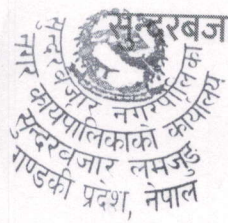 सुन्दरबज
सुन्दरबजार नगरपालिका
नगर कार्यपालिकाको कार्यालय
सुन्दरबजार लमजुङ
गण्डकी प्रदेश, नेपाल